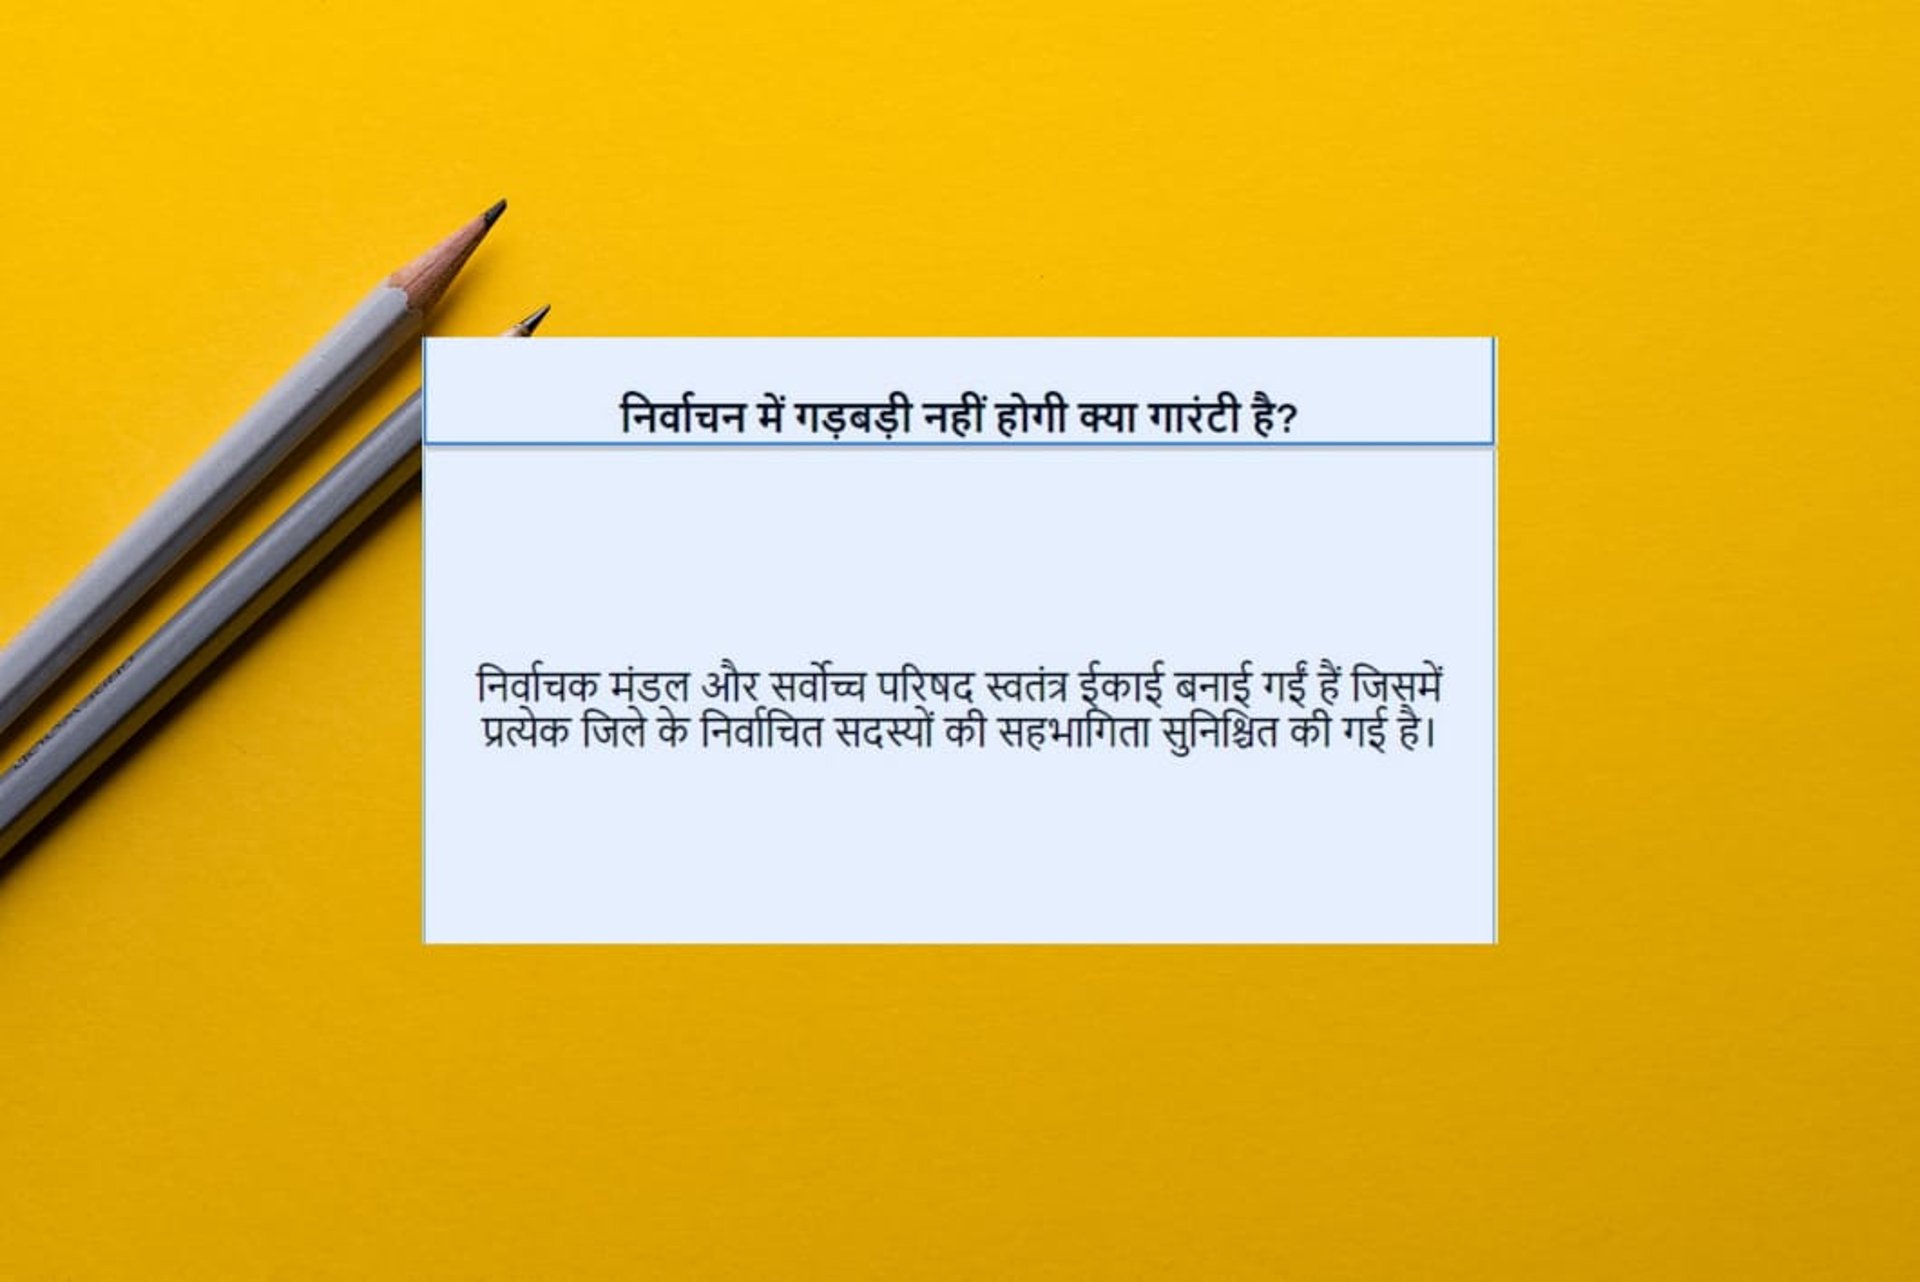 निर्वाचन में गड़बड़ी नहीं होगी क्या गारंटी है?
निर्वाचक मंडल और सर्वोच्च परिषद स्वतंत्र ईकाई बनाई गईं हैं जिसमें
प्रत्येक जिले के निर्वाचित सदस्यों की सहभागिता सुनिश्चित की गई है।